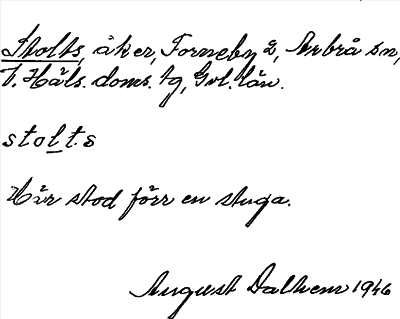 Stolts, åker, Forneby 2, Arbrå sn,
V. Häls. doms. tg, Gvl. län.
stolt.s
Här stod förr en stuga.
August Dalhem 1946